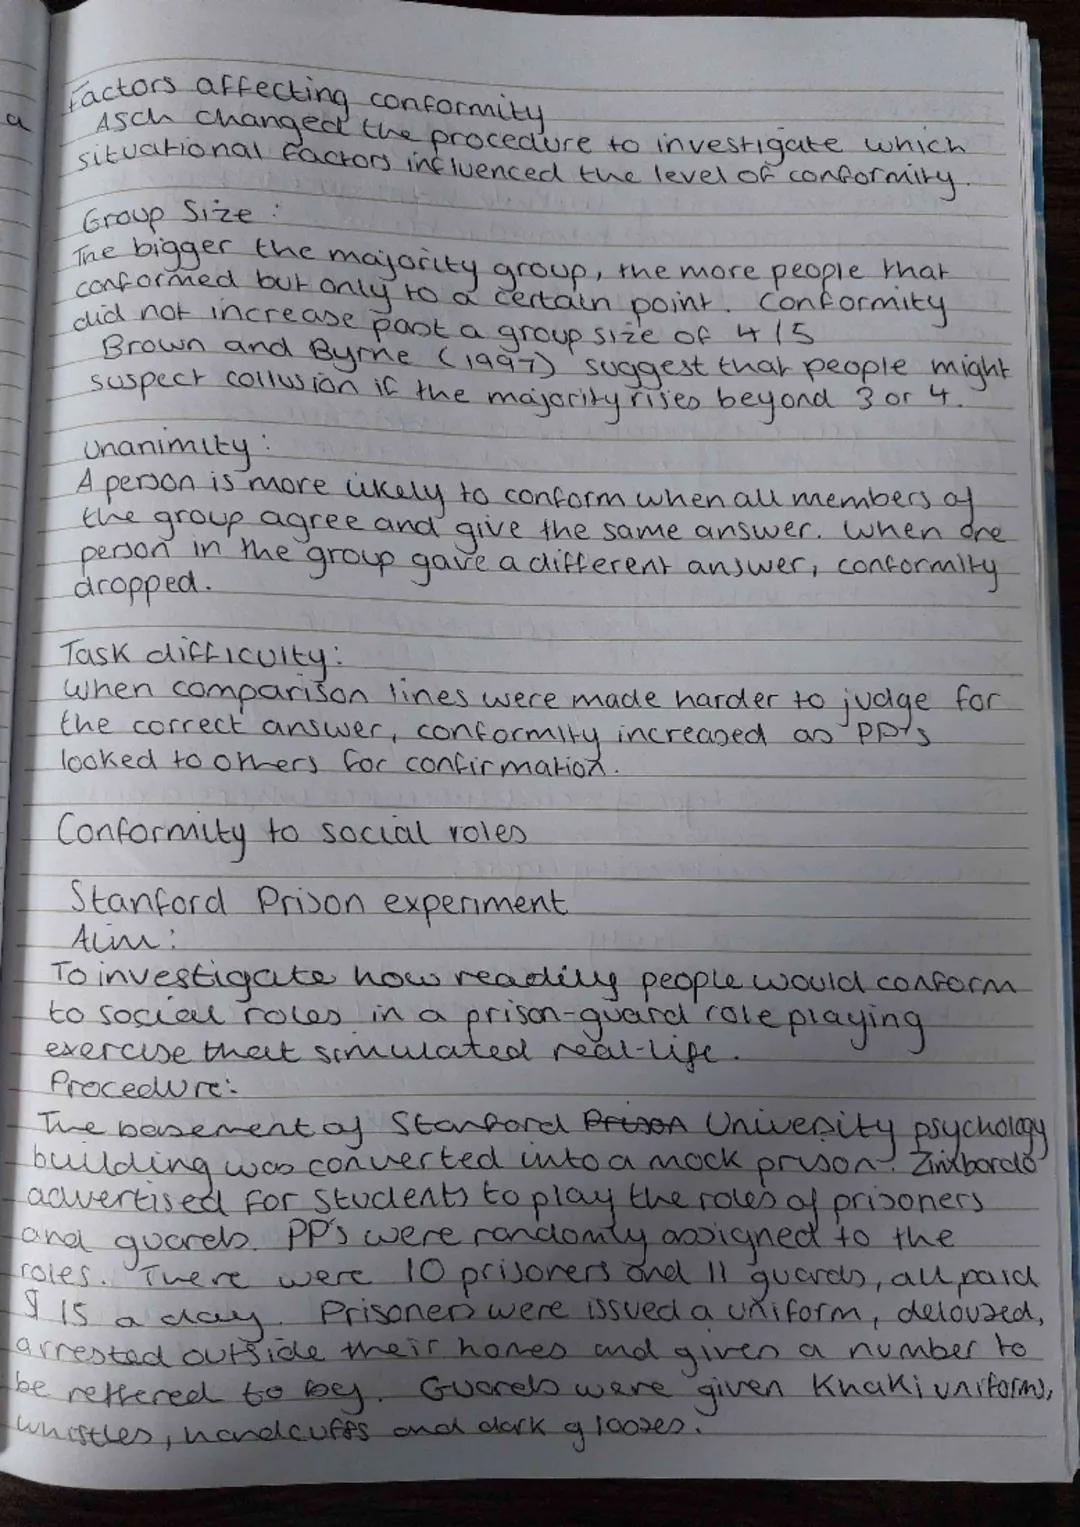 a
Factors affecting conformity
Asch changed the procedure to investigate which
situational factors influenced the level of conformity.
Group Size:
The bigger the majority group, the more people that
conformed but only to a certain point. Conformity
did not increase past a group size of 4/5
Brown and Byrne (1997) suggest that people might
suspect collusion if the majority rises beyond 3 or 4.
Unanimity:
A person is more likely to conform when all members of
the group agree and give the same answer. When one
person in the group gave a different answer, conformity
dropped.
Task difficulty:
When comparison lines were made harder to judge for
the correct answer, conformity increased as PP's
looked to others for confirmation.
Conformity to social roles
Stanford Prison experiment
Aim:
To investigate how readily people would conform
to social roles in a prison-guard role playing
exercise that simulated real-life.
Procedure:
The basement of Stanford Prison University psychology
building was converted into a mock prison. Zimbardo
advertised for students to play the roles of prisoners
and guards. PP's were randomly assigned to the
roles. There were 10 prisoners and 11 guards, all paid
$15 a day. Prisoners were issued a uniform, deloused,
arrested outside their homes and given a number to
be reffered to by. Guards were given Khaki uniforms,
whistles, handcuffs and dark glasses.